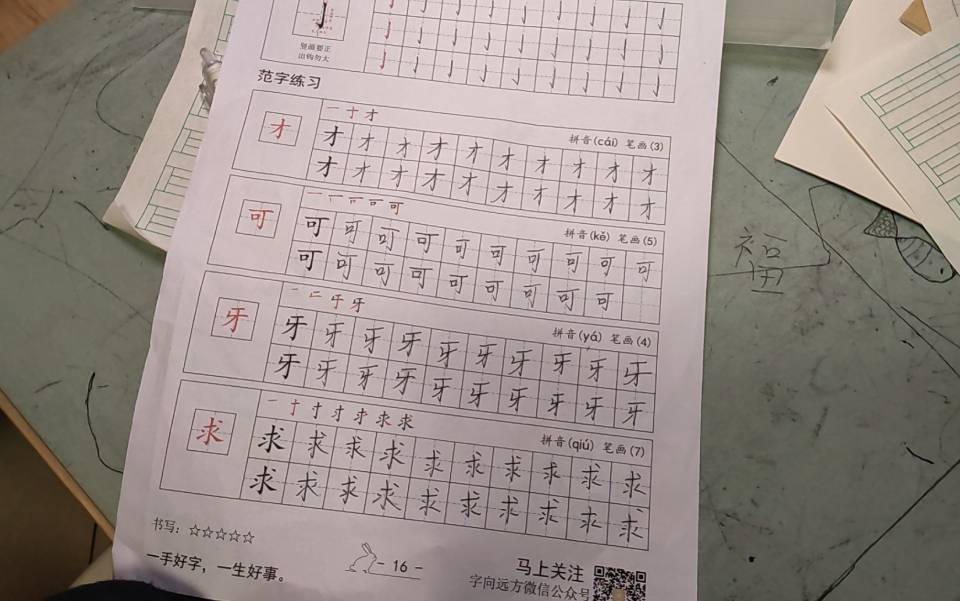 竖画要正
出钩勿大
范字练习
才
一 十 才
拼音(cái) 笔画(3)
才 才 才 才 才 才 才 才 才 才
才 才 才 才 才 才 才 才 才 才
可
拼音(kě) 笔画(5)
可 可 可 可 可 可 可 可 可 可
可 可 可 可 可 可 可 可 可
牙
拼音(yá) 笔画(4)
牙 牙 牙 牙 牙 牙 牙 牙 牙 牙
牙 牙 牙 牙 牙 牙 牙 牙 牙 牙
求
拼音(qiú) 笔画(7)
求 求 求 求 求 求 求 求 求 求
求 求 求 求 求 求 求 求 求 求
书写：☆☆☆☆☆
一手好字，一生好事。
- 16 -
马上关注
字向远方微信公众号
福